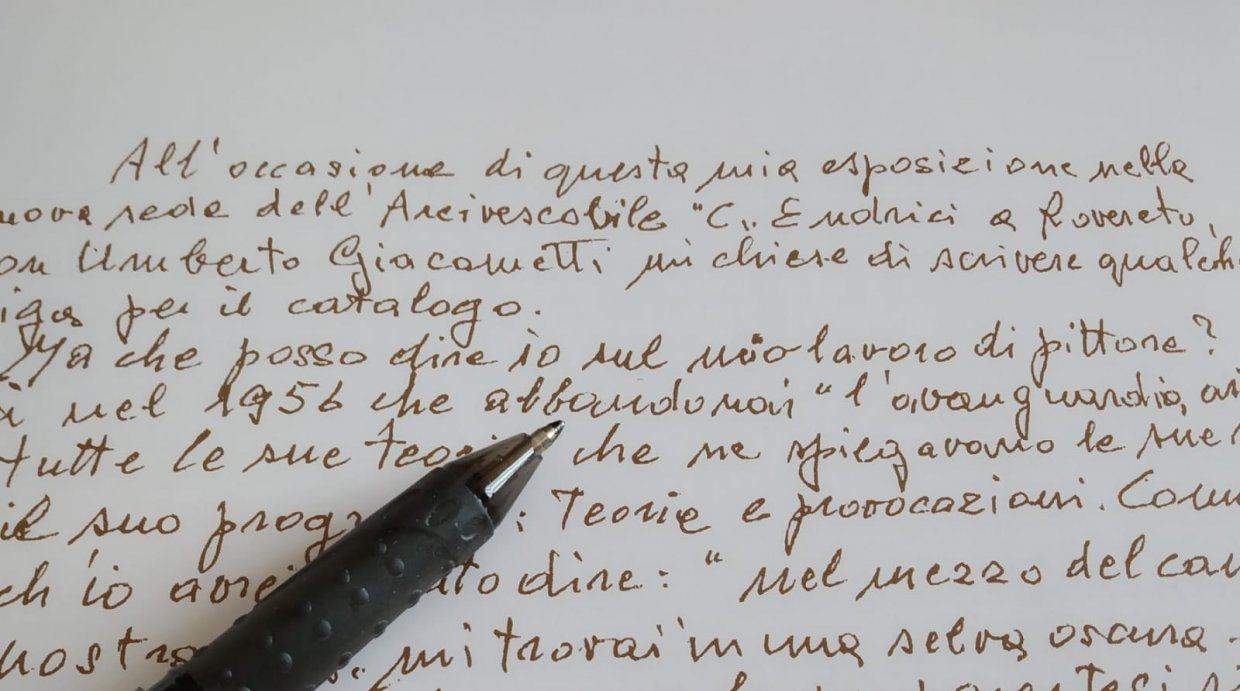 All'occasione di questa mia esposizione nella
nuova sede dell'Arcivescovile "C. Endrici a Rovereto,
on Umberto Giacometti mi chiese di scrivere qualch
iga per il catalogo.
Ma che posso dire io sul mio lavoro di pittore?
nel 1956 che abbandonai "l'avanguardia,
tutte le sue teo che ne spiegavano le sue
il suo progr : Teorie e provocazioni. Com
ch'io avre uto dire: "nel mezzo del cam
nostra mi trovai in una selva oscura